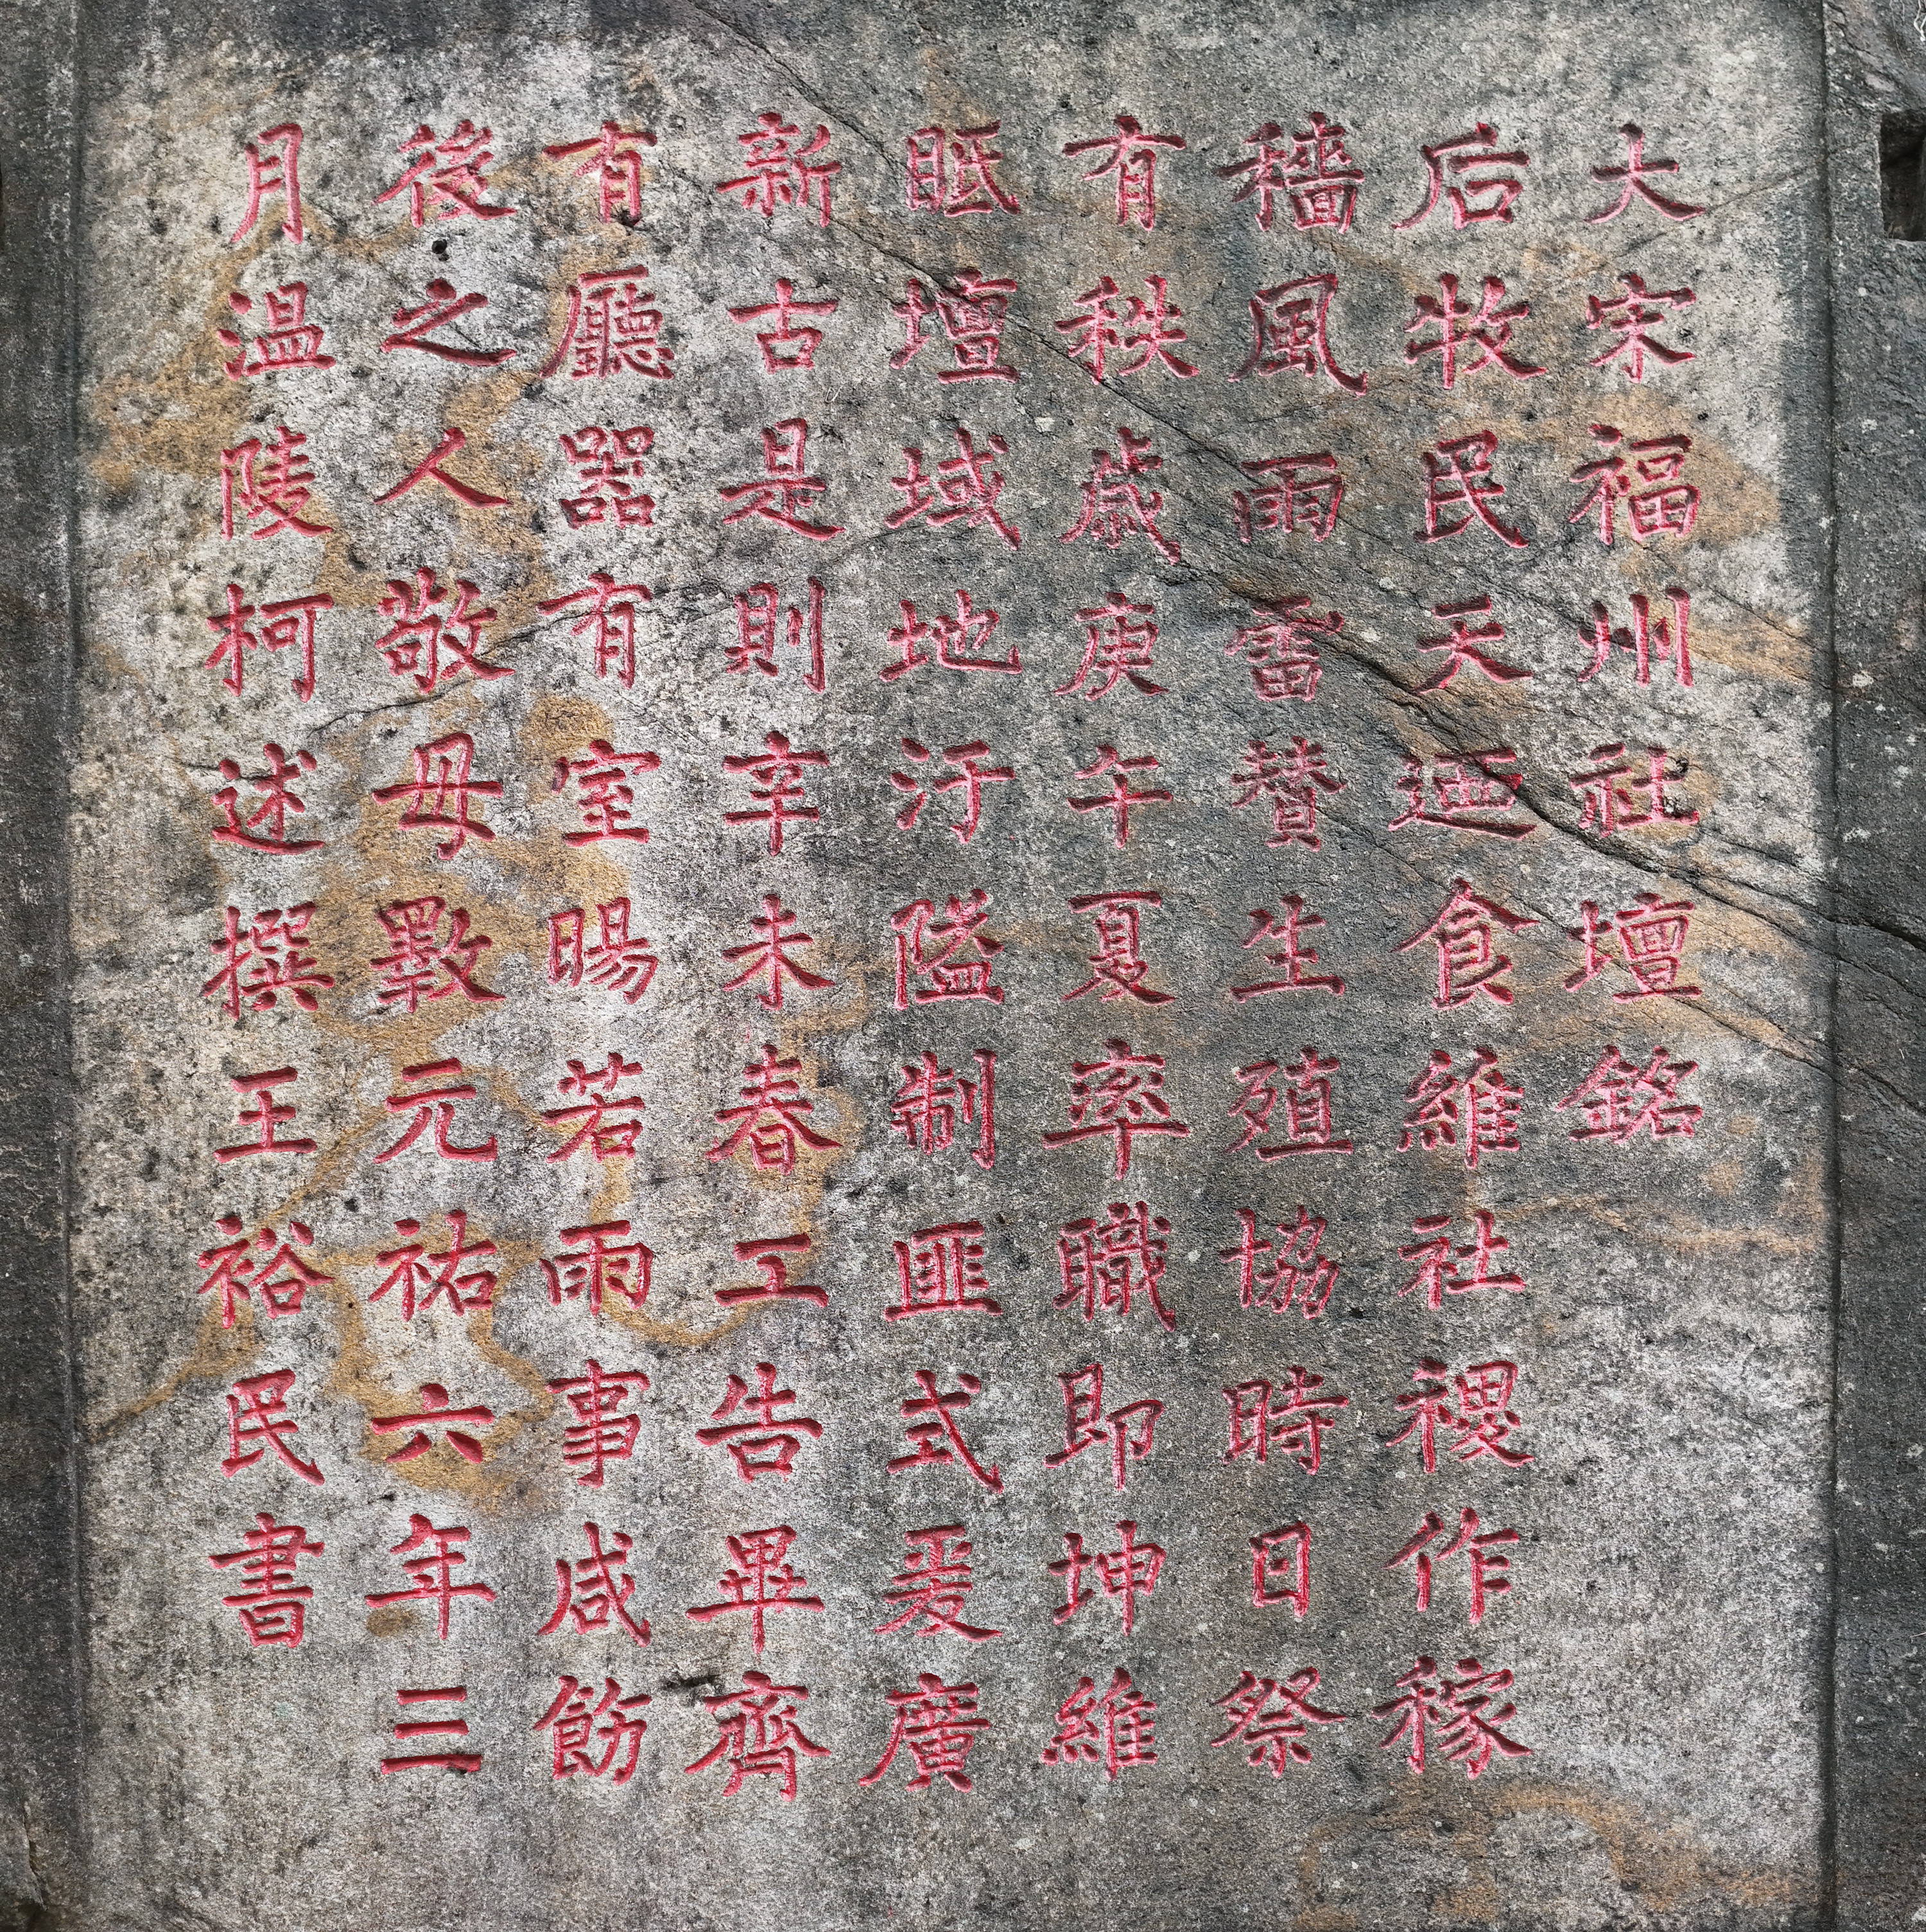 大宋福州社壇銘
后牧民天迺食維社禝作稼
穡風雨雷贊生殖協時日祭
有秩歲庚午夏率職即坤維
眂壇域地汙隘制匪式爰廣
新古是則辛未春工告畢齊
有廳器有室暘若雨事咸飭
後之人敬毋斁元祐六年三
月温陵柯述撰王裕民書